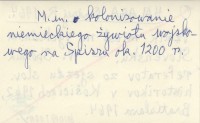 M. in. kolonizowanie
niemieckiego żywiołu wojsko-
wego na Spiszu ok. 1200 r.